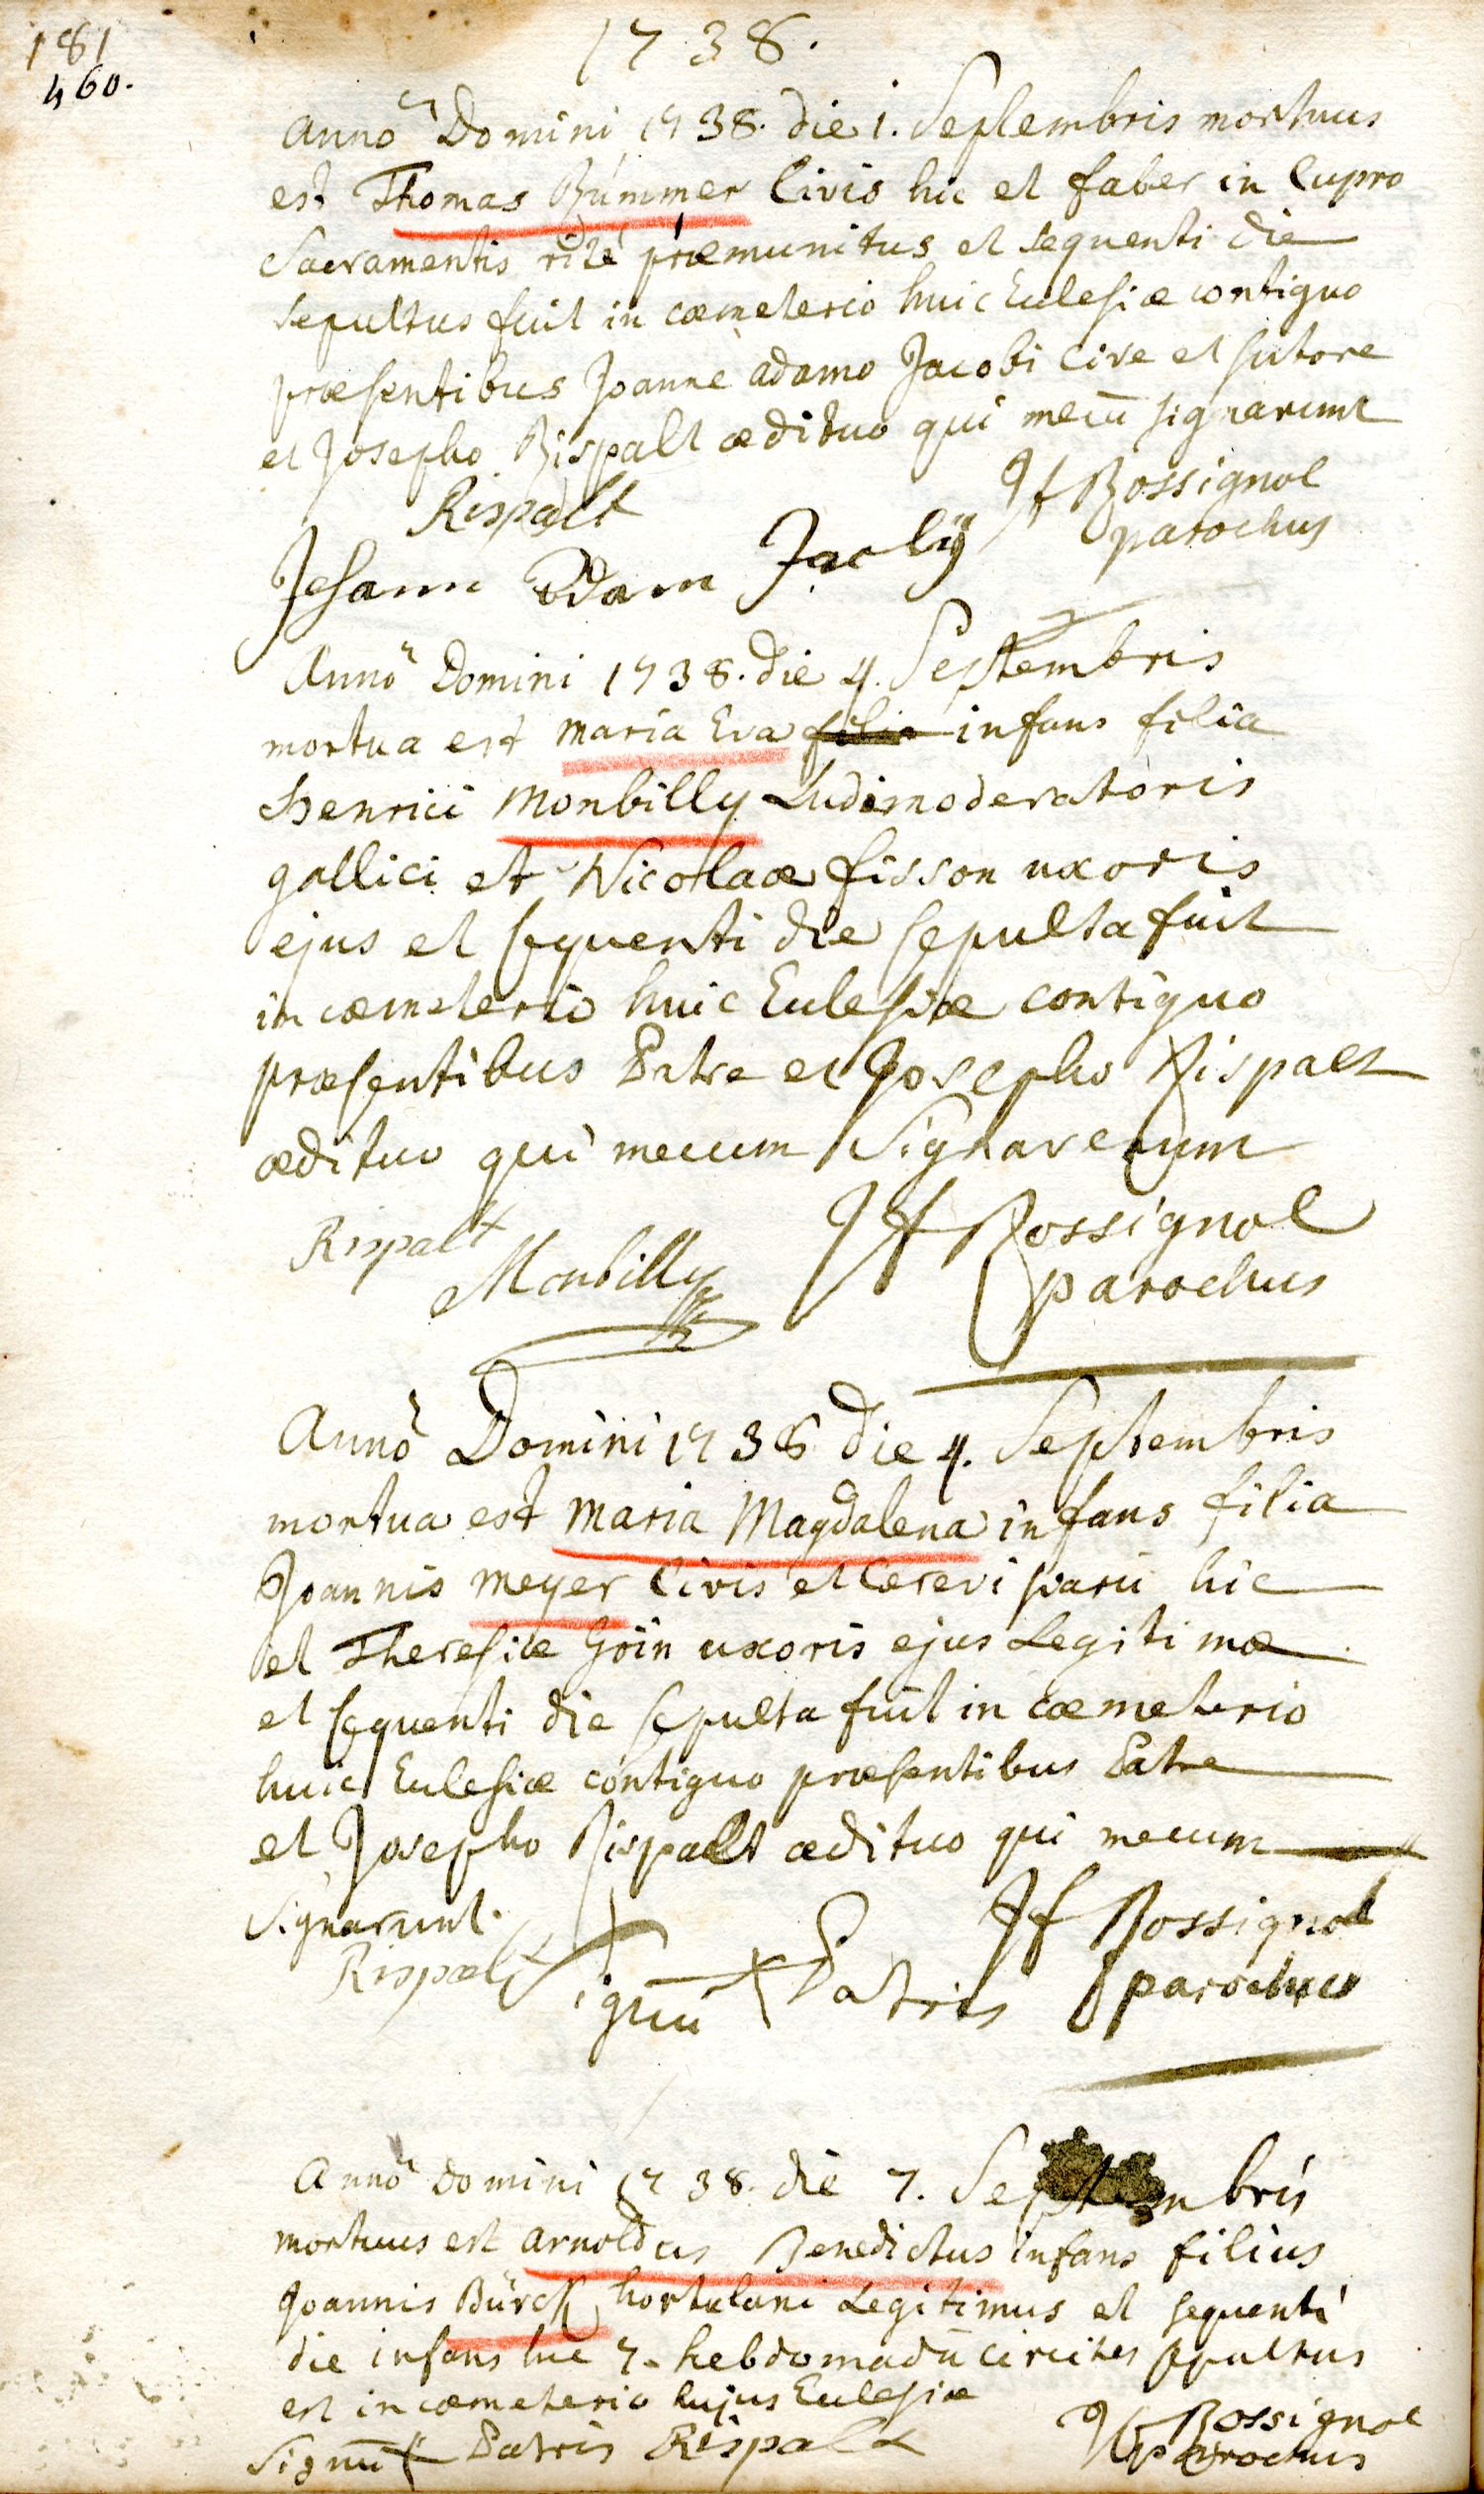 181
460.
1738.
Anno Domini 1738. die 1. Septembris mortuus
est Thomas Bummer Civis hic et faber in Cupro
Sacramentis rité præmunitus et sequenti die
sepultus fuit in cœmeterio huic Eulesiæ contiguo
præsentibus Joanne adamo Jacobi Cive et sutore
et Josepho Rispalt ædituo qui mecū signarunt
Rispalt
Jf Rossignol
parochus
Johann Adam
Anno Domini 1738. die 4. Septembris
mortua est Maria Eva filia infans filia
Henrici Monbilly Ludimoderatoris
gallici et Nicolaæ fisson uxoris
ejus et sequenti die sepulta fuit
in cœmeterio huic Eulesiæ contiguo
præsentibus Patre et Josepho Rispalt
ædituo qui mecum Signaverunt
Rispalt
Monbilly
Jf Rossignol
parochus
Anno Domini 1738 die 4. Septembris
mortua est Maria Magdalena infans filia
Joannis Meyer Civis et Cerevisiarii hic
et Theresiæ Join uxoris ejus Legitimæ
et sequenti die sepulta fuit in cœmeterio
huic Eulesiæ contiguo præsentibus Patre
et Josepho Rispalt ædituo qui mecum
Signarunt.
Rispalt Signū + Patris
Jf Rossignol
parochus
Anno Domini 1738. die 7. Septembris
mortuus est Arnoldus Benedictus infans filius
Joannis Bürck hortulani Legitimus et sequenti
die infans hic 7. hebdomadū circiter sepultus
est in cœmeterio hujus Eulesiæ
Signū + Patris Rispalt
Jf Rossignol
parochus